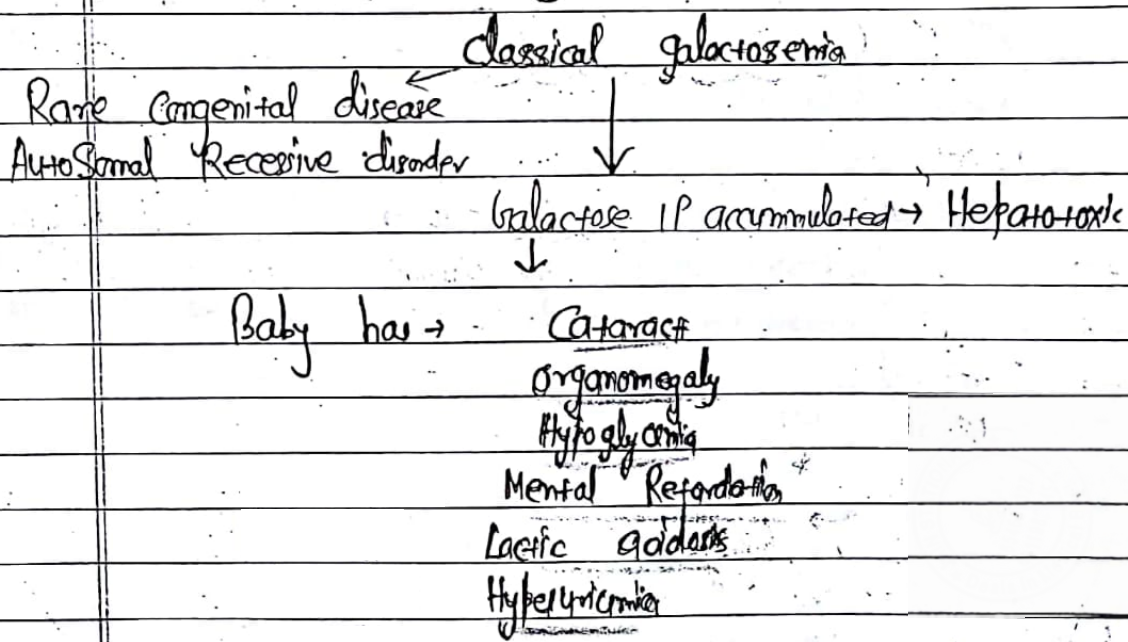 Classical galactosemia
Rare Congenital disease
AutoSomal Recessive disorder
Galactose 1P accummulated → Hepatotoxic
Baby has → Cataract
Organomegaly
Hypoglycemia
Mental Retardation
Lactic acidosis
Hyperuricmia